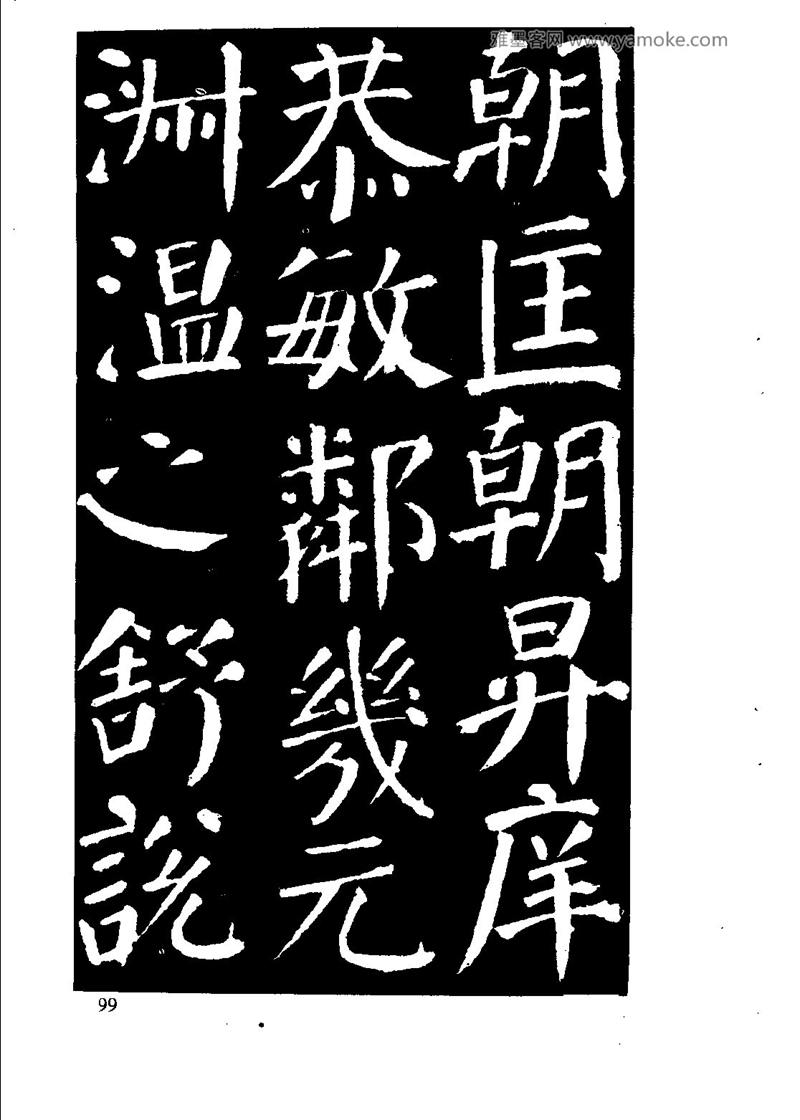 雅墨客网 www.yamoke.com
朝匡朝昇庠
恭敏鄰幾元
淵温之舒說
99